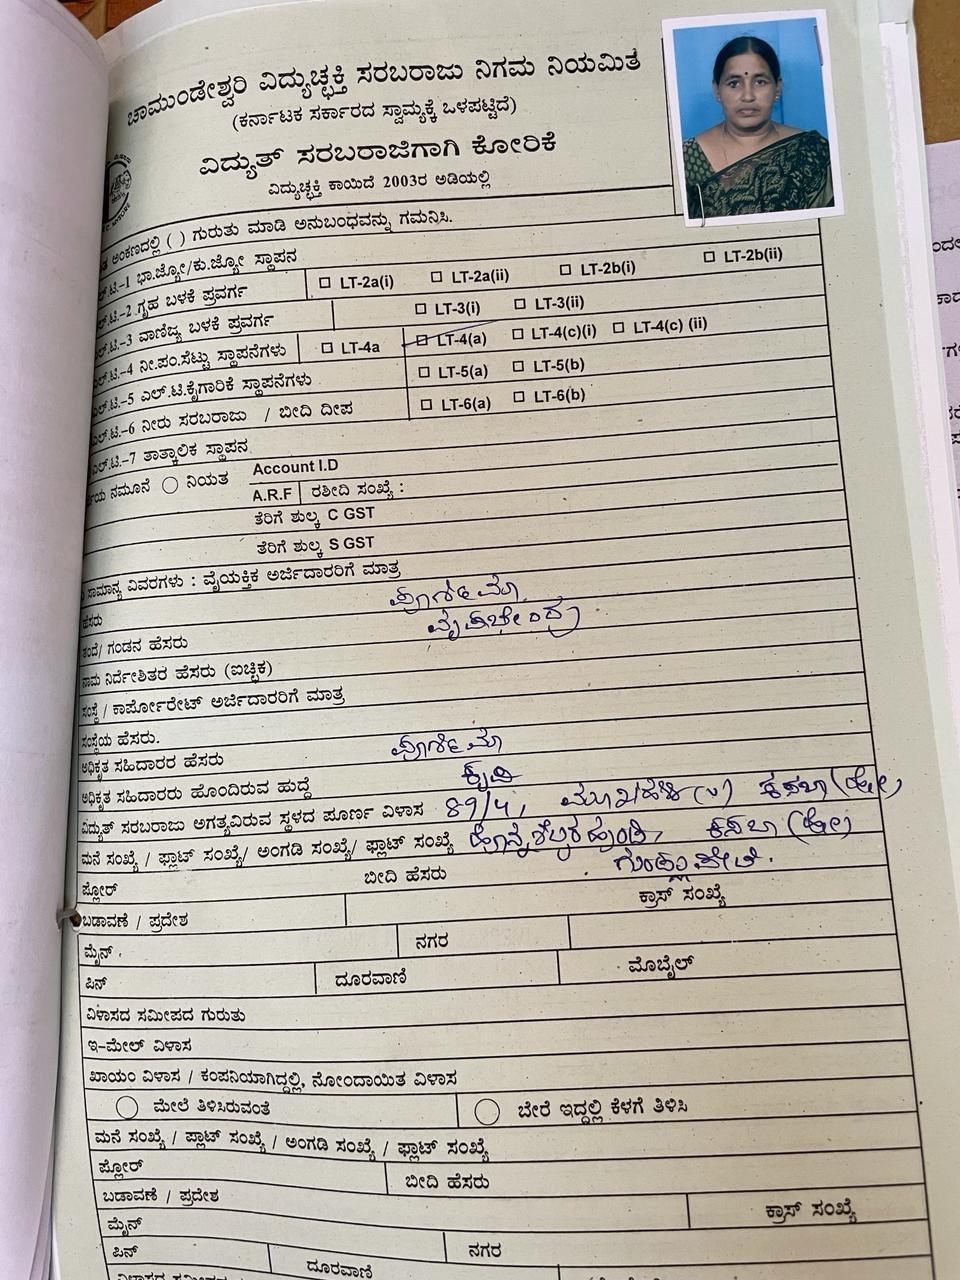 ಚಾಮುಂಡೇಶ್ವರಿ ವಿದ್ಯುಚ್ಛಕ್ತಿ ಸರಬರಾಜು ನಿಗಮ ನಿಯಮಿತ
(ಕರ್ನಾಟಕ ಸರ್ಕಾರದ ಸ್ವಾಮ್ಯಕ್ಕೆ ಒಳಪಟ್ಟಿದೆ)
ವಿದ್ಯುತ್ ಸರಬರಾಜಿಗಾಗಿ ಕೋರಿಕೆ
ವಿದ್ಯುಚ್ಛಕ್ತಿ ಕಾಯಿದೆ 2003ರ ಅಡಿಯಲ್ಲಿ
ಅಂಕಣದಲ್ಲಿ ( ) ಗುರುತು ಮಾಡಿ ಅನುಬಂಧವನ್ನು ಗಮನಿಸಿ.
ಟಿ.–1 ಭಾ.ಜ್ಯೋ/ಕು.ಜ್ಯೋ ಸ್ಥಾಪನ
ಟಿ.–2 ಗೃಹ ಬಳಕೆ ಪ್ರವರ್ಗ LT-2a(i) LT-2a(ii) LT-2b(i) LT-2b(ii)
ಟಿ.–3 ವಾಣಿಜ್ಯ ಬಳಕೆ ಪ್ರವರ್ಗ LT-3(i) LT-3(ii)
ಎಲ್.ಟಿ.–4 ನೀ.ಪಂ.ಸೆಟ್ಟು ಸ್ಥಾಪನೆಗಳು LT-4a LT-4(a) LT-4(c)(i) LT-4(c) (ii)
ಎಲ್.ಟಿ.–5 ಎಲ್.ಟಿ.ಕೈಗಾರಿಕೆ ಸ್ಥಾಪನೆಗಳು LT-5(a) LT-5(b)
ಎಲ್.ಟಿ.–6 ನೀರು ಸರಬರಾಜು / ಬೀದಿ ದೀಪ LT-6(a) LT-6(b)
ಎಲ್.ಟಿ.–7 ತಾತ್ಕಾಲಿಕ ಸ್ಥಾಪನ
ನಮೂನೆ ನಿಯತ Account I.D
A.R.F ರಶೀದಿ ಸಂಖ್ಯೆ :
ತೆರಿಗೆ ಶುಲ್ಕ C GST
ತೆರಿಗೆ ಶುಲ್ಕ S GST
ಸಾಮಾನ್ಯ ವಿವರಗಳು : ವೈಯಕ್ತಿಕ ಅರ್ಜಿದಾರರಿಗೆ ಮಾತ್ರ
ಹೆಸರು
ತಂದೆ/ ಗಂಡನ ಹೆಸರು
ನಾಮ ನಿರ್ದೇಶಿತರ ಹೆಸರು (ಐಚ್ಛಿಕ)
ಸಂಸ್ಥೆ / ಕಾರ್ಪೋರೇಟ್ ಅರ್ಜಿದಾರರಿಗೆ ಮಾತ್ರ
ಸಂಸ್ಥೆಯ ಹೆಸರು.
ಅಧಿಕೃತ ಸಹಿದಾರರ ಹೆಸರು
ಅಧಿಕೃತ ಸಹಿದಾರರು ಹೊಂದಿರುವ ಹುದ್ದೆ ಕೃಷಿ
ವಿದ್ಯುತ್ ಸರಬರಾಜು ಅಗತ್ಯವಿರುವ ಸ್ಥಳದ ಪೂರ್ಣ ವಿಳಾಸ 89/4, ಕಸಬಾ (ಹೋ)
ಮನೆ ಸಂಖ್ಯೆ / ಫ್ಲಾಟ್ ಸಂಖ್ಯೆ/ ಅಂಗಡಿ ಸಂಖ್ಯೆ/ ಫ್ಲಾಟ್ ಸಂಖ್ಯೆ ಕಸಬಾ (ಹೋ)
ಗುಂಡ್ಲುಪೇಟೆ.
ಫ್ಲೋರ್ ಬೀದಿ ಹೆಸರು
ಬಡಾವಣೆ / ಪ್ರದೇಶ ಕ್ರಾಸ್ ಸಂಖ್ಯೆ
ಮೈನ್ ನಗರ
ಪಿನ್ ದೂರವಾಣಿ ಮೊಬೈಲ್
ವಿಳಾಸದ ಸಮೀಪದ ಗುರುತು
ಇ–ಮೇಲ್ ವಿಳಾಸ
ಖಾಯಂ ವಿಳಾಸ / ಕಂಪನಿಯಾಗಿದ್ದಲ್ಲಿ, ನೋಂದಾಯಿತ ವಿಳಾಸ
ಮೇಲೆ ತಿಳಿಸಿರುವಂತೆ ಬೇರೆ ಇದ್ದಲ್ಲಿ ಕೆಳಗೆ ತಿಳಿಸಿ
ಮನೆ ಸಂಖ್ಯೆ / ಪ್ಲಾಟ್ ಸಂಖ್ಯೆ / ಅಂಗಡಿ ಸಂಖ್ಯೆ / ಫ್ಲಾಟ್ ಸಂಖ್ಯೆ
ಫ್ಲೋರ್ ಬೀದಿ ಹೆಸರು
ಬಡಾವಣೆ / ಪ್ರದೇಶ ಕ್ರಾಸ್ ಸಂಖ್ಯೆ
ಮೈನ್ ನಗರ
ಪಿನ್ ದೂರವಾಣಿ